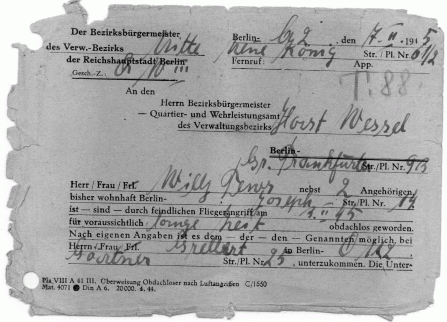 Der Bezirksbürgermeister
Berlin- C 2, den 7. II. 1945
des Verw.-Bezirks Mitte Neue König Str./Pl. Nr. 
der Reichshauptstadt Berlin Fernruf: App.
Gesch.-Z.: III
T. 88
An den
Herrn Bezirksbürgermeister
— Quartier- und Wehrleistungsamt
des Verwaltungsbezirks Horst Wessel
Berlin-
Gr. Frankfurter Str./Pl. Nr.
Herr / Frau / Frl. Willy nebst 2 Angehörigen,
bisher wohnhaft Berlin- Joseph- Str. 
ist — sind — durch feindlichen Fliegerangriff am 45
für voraussichtlich obdachlos geworden.
Nach eigenen Angaben ist es dem — der — den — Genannten möglich, bei
Herrn / Frau in Berlin-
Gaertner Str./Pl. Nr. 25, unterzukommen. Die Unter-
Pla VIII A 61 III. Überweisung Obdachloser nach Luftangriffen C/1560
Mat. 4071 Din A 6. 20000. 4. 44.